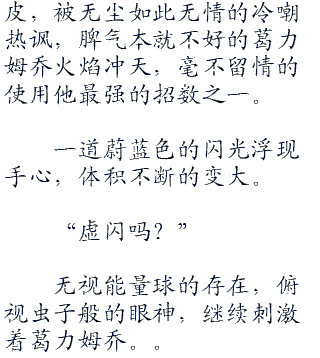 皮，被无尘如此无情的冷嘲
热讽，脾气本就不好的葛力
姆乔火焰冲天，毫不留情的
使用他最强的招数之一。
一道蔚蓝色的闪光浮现
手心，体积不断的变大。
“虚闪吗？”
无视能量球的存在，俯
视虫子般的眼神，继续刺激
着葛力姆乔。。